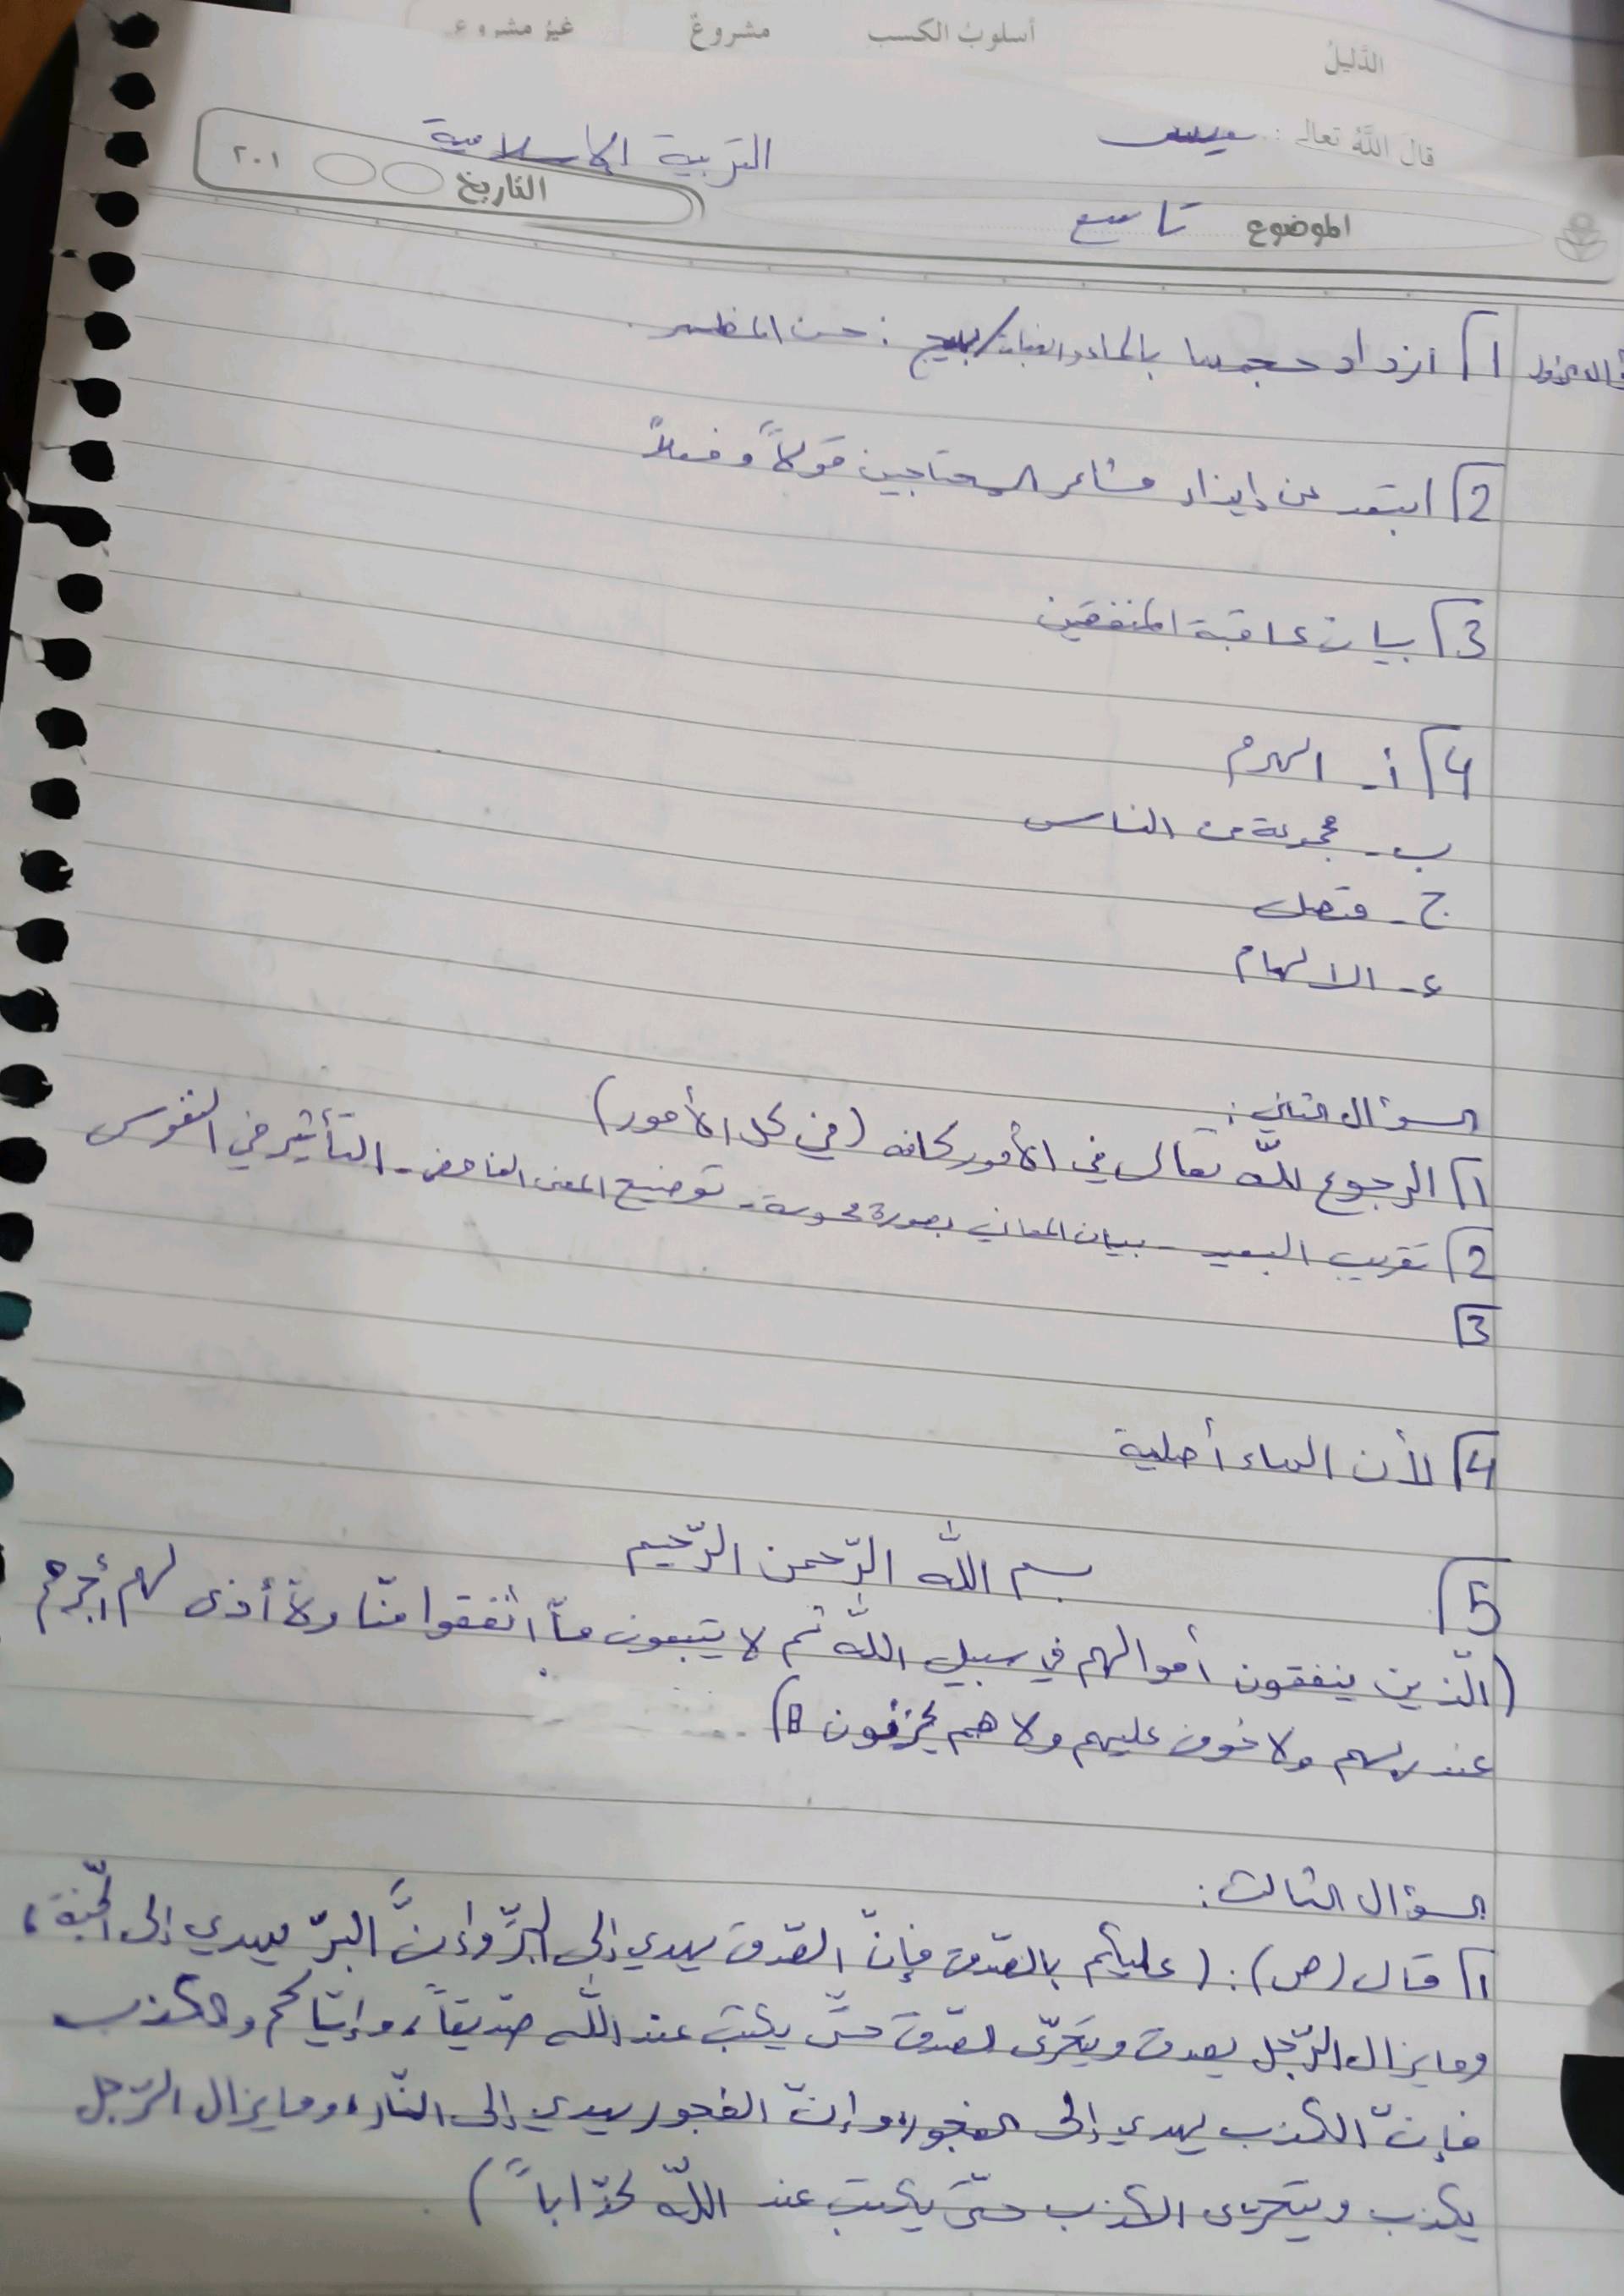 أسلوبُ الكسب مشروعٌ غيرُ مشروع
الدّليلُ
قالَ اللهُ تعالى:
التربية الإسلامية
الموضوع تاسع
التاريخ ٢٠١
1 ازداد حجمها بالماء والنبات / بهيج : حسن المظهر
2 ابتعد عن إيذاء مشاعر المحتاجين قولاً وفعلاً
3 بيان عاقبة المنفقين
4 أ- الهرم
ب- مجموعة من الناس
ج- متصل
ء- الالهام
السؤال الثاني:
1 الرجوع للّه تعالى في الأمور كافه (في كل الأمور)
2 تقريب البعيد - بيان المعاني بصورة محسوسة - توضيح المعنى الغامض - التأثير في النفوس
3
4 لأن الدماء أصلية
بسم اللّٰه الرّحمن الرّحيم
5
(الّذين ينفقون أموالهم في سبيل اللّٰه ثم لا يتبعون مآ انفقوا منّا ولآ أذى لهم أجرهم
عند ربهم ولا خوف عليهم ولا هم يحزنون)
السؤال الثالث:
1 قال (ص): (عليكم بالصّدق فإنّ الصّدق يهدي إلى البرِّ وإنَّ البرّ يهدي إلى الجّنة،
وما يزال الرّجل يصدق ويتحرّى الصّدق حتّى يكتب عند اللّٰه صدّيقاً، وإيّاكم والكذب
فإنّ الكذب يهدي إلى الفجور، وإنّ الفجور يهدي إلى النّار، وما يزال الرّجل
يكذب ويتحرى الكذب حتّى يكتب عند اللّٰه كذّاباً)